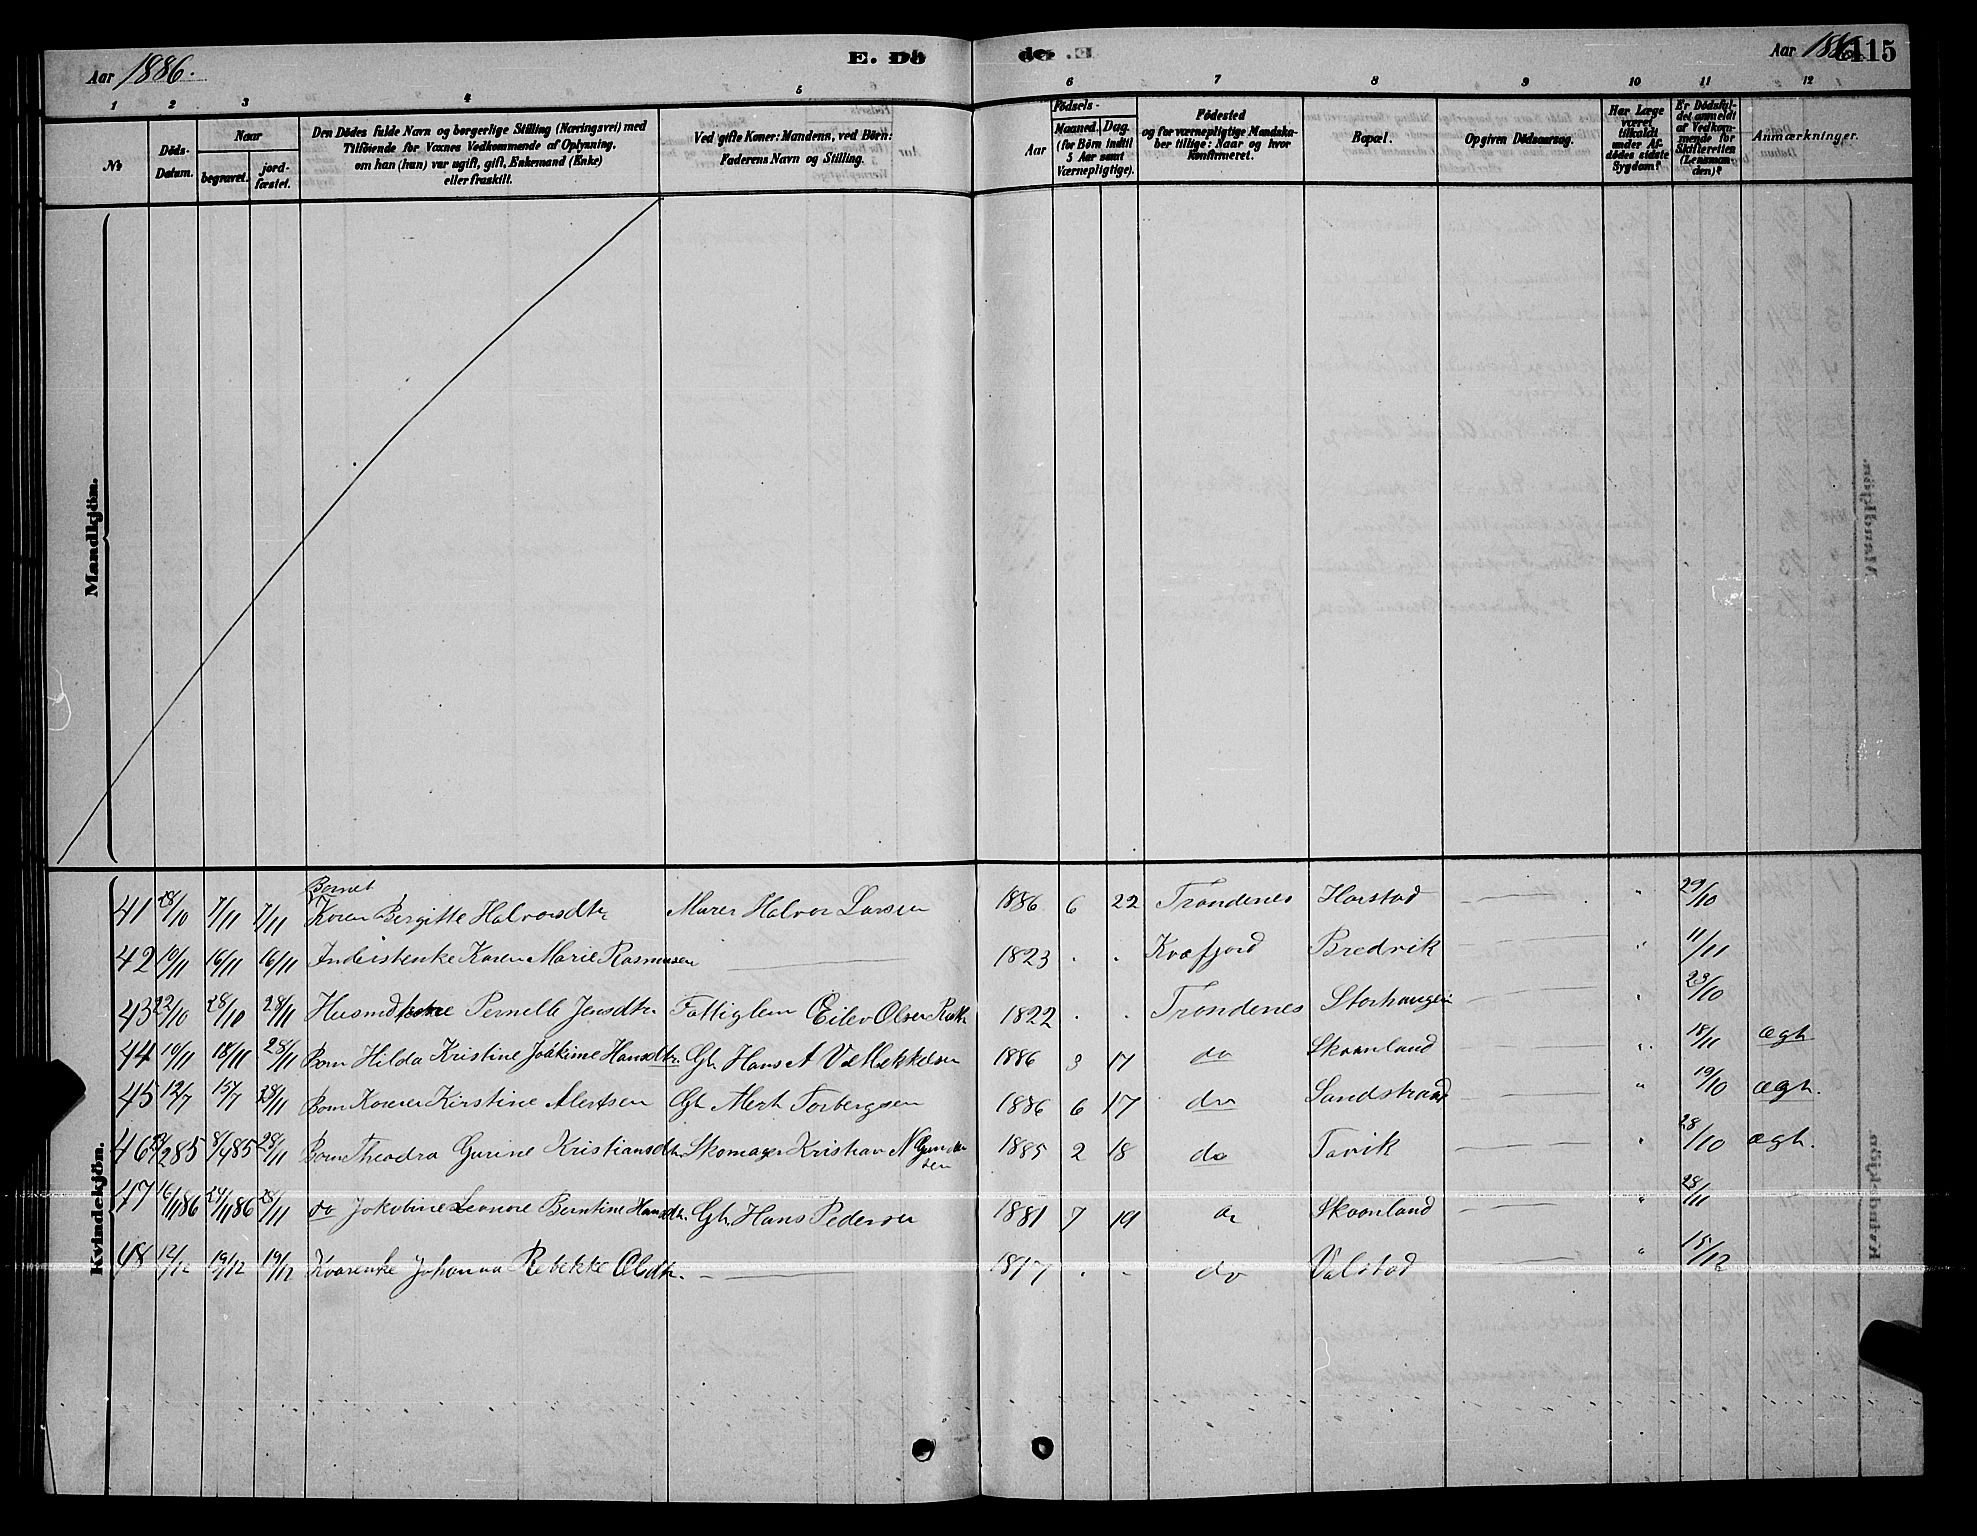 Aar 1886.
E. Dö
de. E
Aar 1886
115
1 2 3 4 5 6 7 8 9 10 11 12
№
Döds-Datum.
Naar
begravet.
jord-fæstet.
Den Dödes fulde Navn og borgerlige Stilling (Næringsvei) med
Tilföiende for Voxnes Vedkommende af Oplysning,
om han (hun) var ugift, gift, Enkemand (Enke)
eller fraskilt.
Ved gifte Koner: Mandens, ved Börn:
Faderens Navn og Stilling.
Födsels-
Aar
Maaned. Dag.
(for Börn indtil
5 Aar samt
Værnepligtige).
Födested
og for værnepligtige Mandska-
ber tillige: Naar og hvor
konfirmeret.
Bopæl.
Opgiven Dödsaarsag.
Har Læge
været
tilkaldt
under Af-
dödes sidste
Sygdom?
Er Dödsfal-
det anmeldt
af Vedkom-
mende for
Skifteretten
(Lensman-
den)?
Anmærkninger.
Mandkjön.
Kvindekjön.
41 28/10 7/11 7/11 Barnet Karen Bergitte Halvorsdtr Murer Halvor Larsen 1886 6 22 Trondenes Harstad — " 29/10
42 10/11 16/11 16/11 Inderstenke Karen Marie Rasmusen — 1823 . . Kvæfjord Bredvik — " 11/11
43 22/10 28/10 28/11 Husmdkone Pernelle Jensdtr Fattiglem Eilev Olsen 1822 . . Trondenes Storhaugen — " 23/10
44 10/11 18/11 28/11 Barn Hilda Kristine Joakime Hansdtr. Gh Hans A 1886 3 17 do Skaanland " 18/11 ægh
45 12/7 15/7 28/11 Barn Karen Kirstine Alertsen Gh Alert Torbergsen 1886 6 17 do Sandstrand — " 19/10 ægh.
46 8/4 85 28/11 Barn Theodra Gurine Kristiansdtr. Skomager Kristian N 1885 2 18 do Tovik — " 28/10 ægh.
47 16/11 86 24/11 86 28/11 do Jakobine Leonore Berntine Hansdtr. Gh. Hans Pedersen 1881 7 19 do Skaanland — " 28/11
48 12/12 19/12 19/12 Kaarenke Johanna Rebekke Olsdtr. — 1817 . . do Valstad — " 15/12